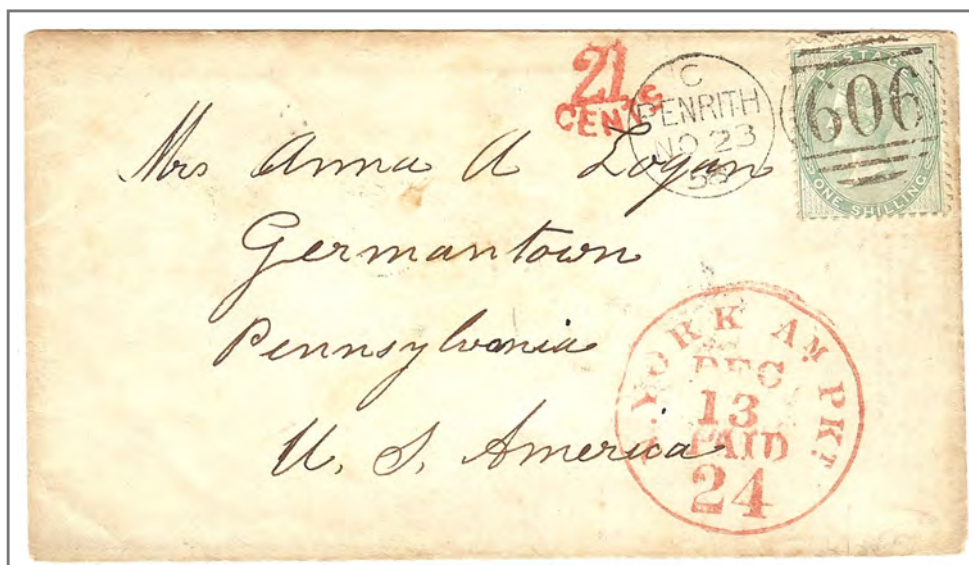 21
CENTS
C
PENRITH
NO 23
POSTAGE
606
ONE SHILLING
Mrs Anna A Logan
Germantown
Pennsylvania
U. S. America
N. YORK AM. PKT.
DEC
13
PAID
24